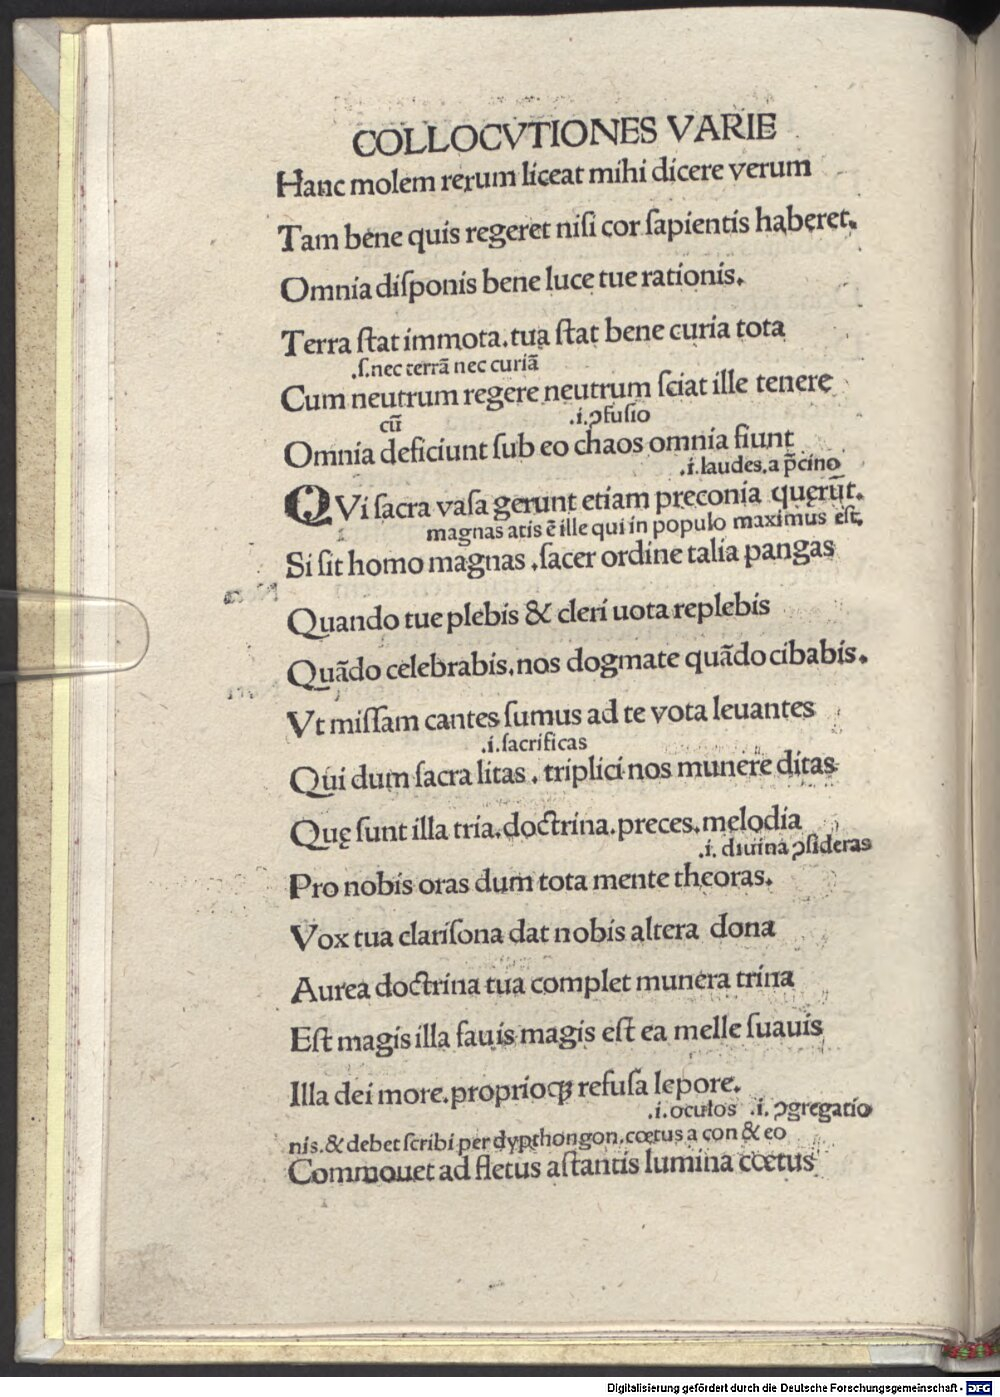 COLLOCVTIONES VARIE
Hanc molem rerum liceat mihi dicere verum
Tam bene quis regeret niſi cor ſapientis haberet.
Omnia diſponis bene luce tue rationis.
Terra ſtat immota.tua ſtat bene curia tota
.ſ.nec terrã nec curiã
Cum neutrum regere neutrum ſciat ille tenere
cũ .i.ꝯfuſio
Omnia deficiunt ſub eo chaos omnia fiunt
.i.laudes.a p̃cino
QVi ſacra vaſa gerunt etiam preconia quęrũt.
magnas atis ẽ ille qui in populo maximus eſt.
Si ſit homo magnas .ſacer ordine talia pangas
Quando tue plebis & cleri uota replebis
Quãdo celebrabis.nos dogmate quãdo cibabis.
Vt miſſam cantes ſumus ad te vota leuantes
.i.ſacrificas
Qui dum ſacra litas . triplici nos munere ditas
Quę ſunt illa tria.doctrina.preces.melodia
.i. diuina ꝯſideras
Pro nobis oras dum tota mente theoras.
Vox tua clariſona dat nobis altera dona
Aurea doctrina tua complet munera trina
Eſt magis illa fauis magis eſt ea melle ſuauis
Illa dei more.proprioqꝫ refuſa lepore.
.i.oculos .i. ꝯgregatio
nis.& debet ſcribi per dypthongon.cœtus a con & eo
Commouet ad fletus aſtantis lumina cœtus
Digitalisierung gefördert durch die Deutsche Forschungsgemeinschaft - DFG